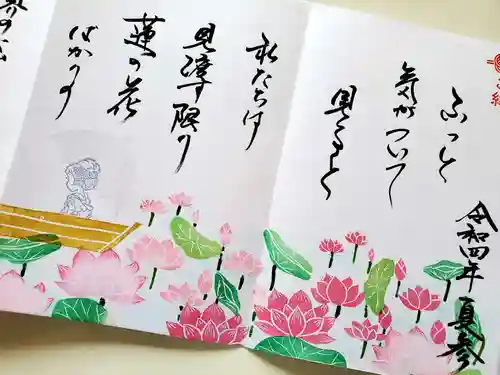 令和四年 夏参
ふっと
気がついて
私たちは
見渡す限り
蓮の花
ばかりの